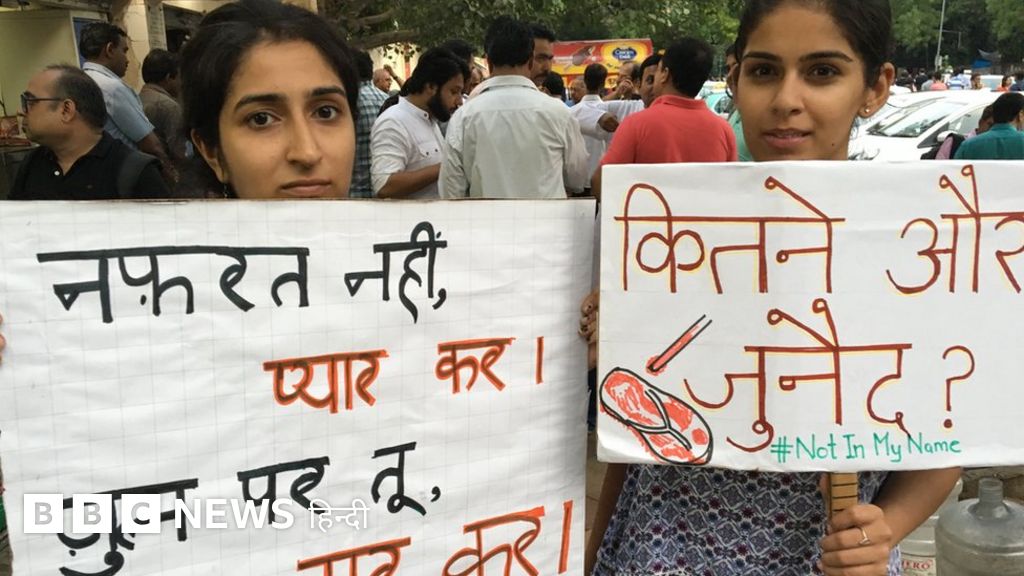 नफ़रत नहीं,
प्यार कर।
पर तू,
कर।
कितने और
जुनैद ?
#Not In My Name
BBC NEWS हिन्दी